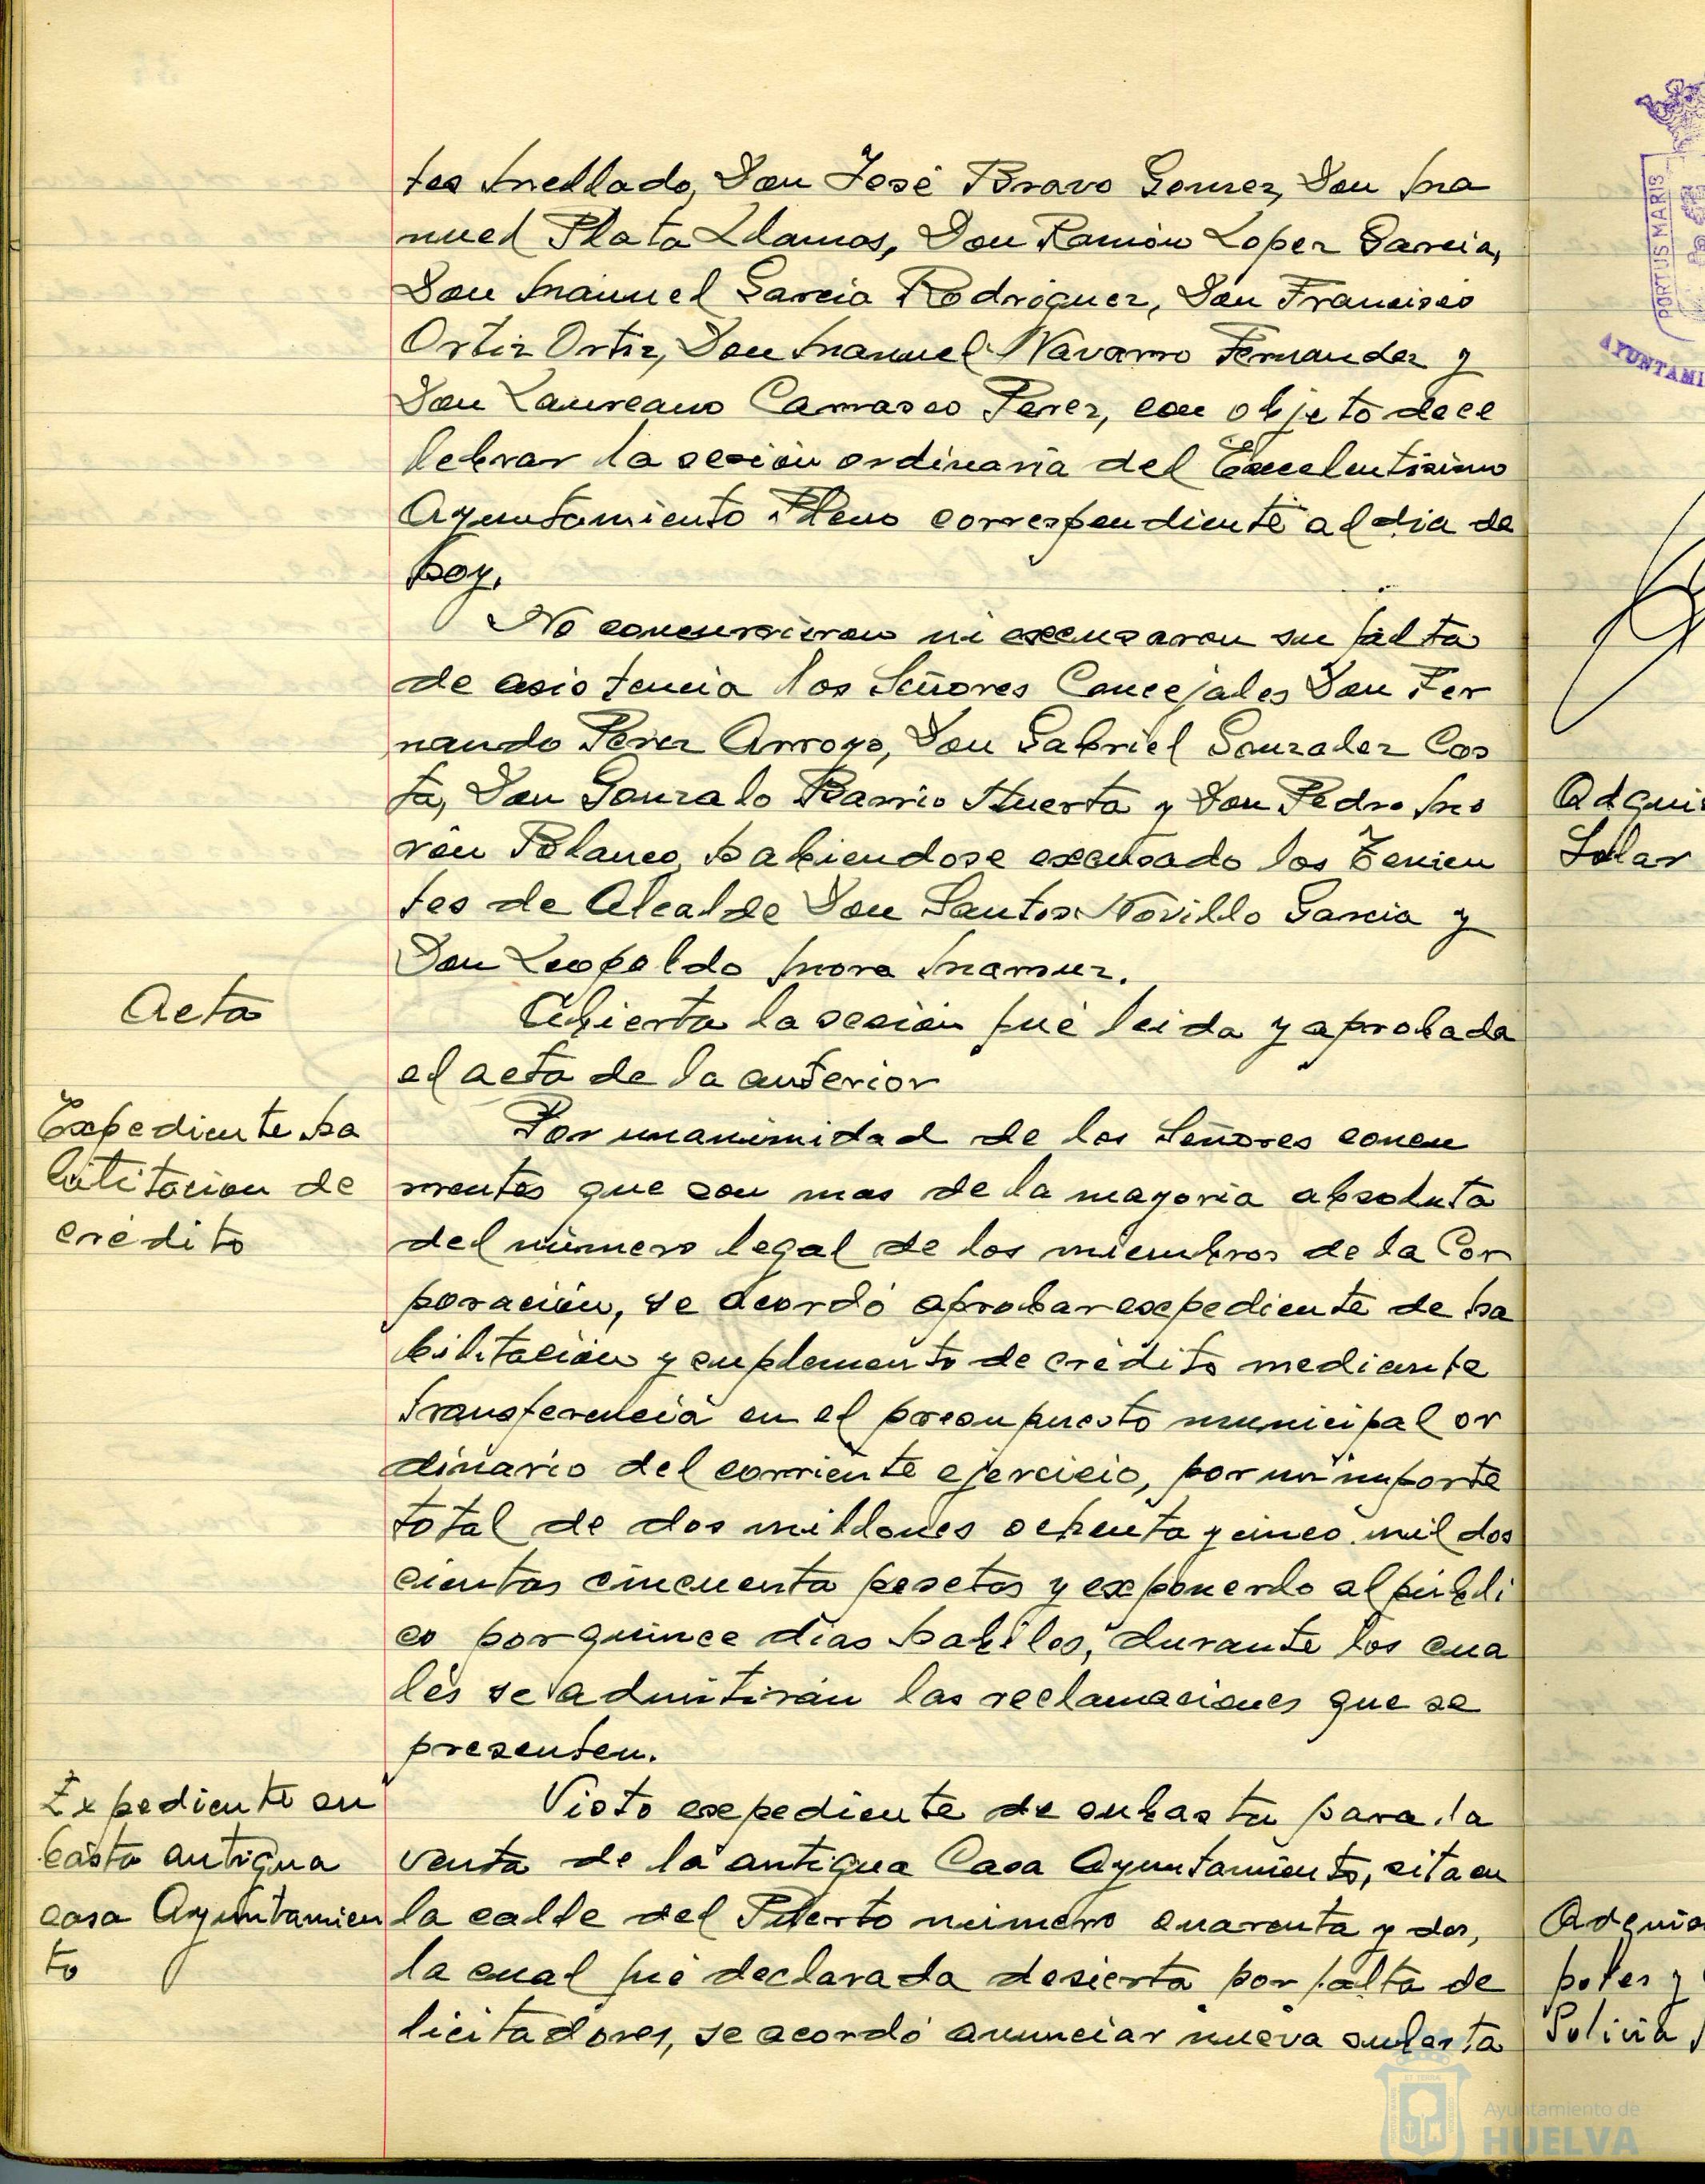 tes Mellado, Don José Bravo Gomez, Don Ma
nuel Plata Llamas, Don Ramón Lopez Garcia,
Don Manuel Garcia Rodriguez, Don Francisco
Ortiz Ortiz, Don Manuel Navarro Fernandez y
Don Laureano Carrasco Perez, con objeto de ce
lebrar la sesión ordinaria del Excelentisimo
Ayuntamiento Pleno correspondiente al dia de
hoy.
No concurrieron ni excusaron su falta
de asistencia los Señores Concejales Don Fer
nando Perez Arroyo, Don Gabriel Gonzalez Cos
ta, Don Gonzalo Barrio Huerta y Don Pedro Mo
rón Polanco, habiendose excusado los Tenien
tes de Alcalde Don Santos Novillo Garcia y
Don Leopoldo Mora
Acta
Abierta la sesión fué leida y aprobada
el acta de la anterior
Expediente ha
bilitacion de
crédito
Por unanimidad de los Señores concu
rrentes que son mas de la mayoria absoluta
del número legal de los miembros de la Cor
poración, se acordó aprobar expediente de ha
bilitación y suplemento de crédito mediante
transferencia en el presupuesto municipal or
dinario del corriente ejercicio, por un importe
total de dos millones ochenta y cinco mil dos
cientas cincuenta pesetas y exponerlo al públi
co por quince dias habiles, durante los cua
les se admitirán las reclamaciones que se
presenten.
Expediente su
basta antigua
casa Ayuntamien
to
Visto expediente de subasta para la
venta de la antigua Casa Ayuntamiento, sita en
la calle del Puerto número cuarenta y dos,
la cual fué declarada desierta por falta de
licitadores, se acordó anunciar nueva subasta
PORTUS MARIS
AYUNTAMI
Adquis
Solar
Adquis
poles y
Policia
Ayuntamiento de
HUELVA